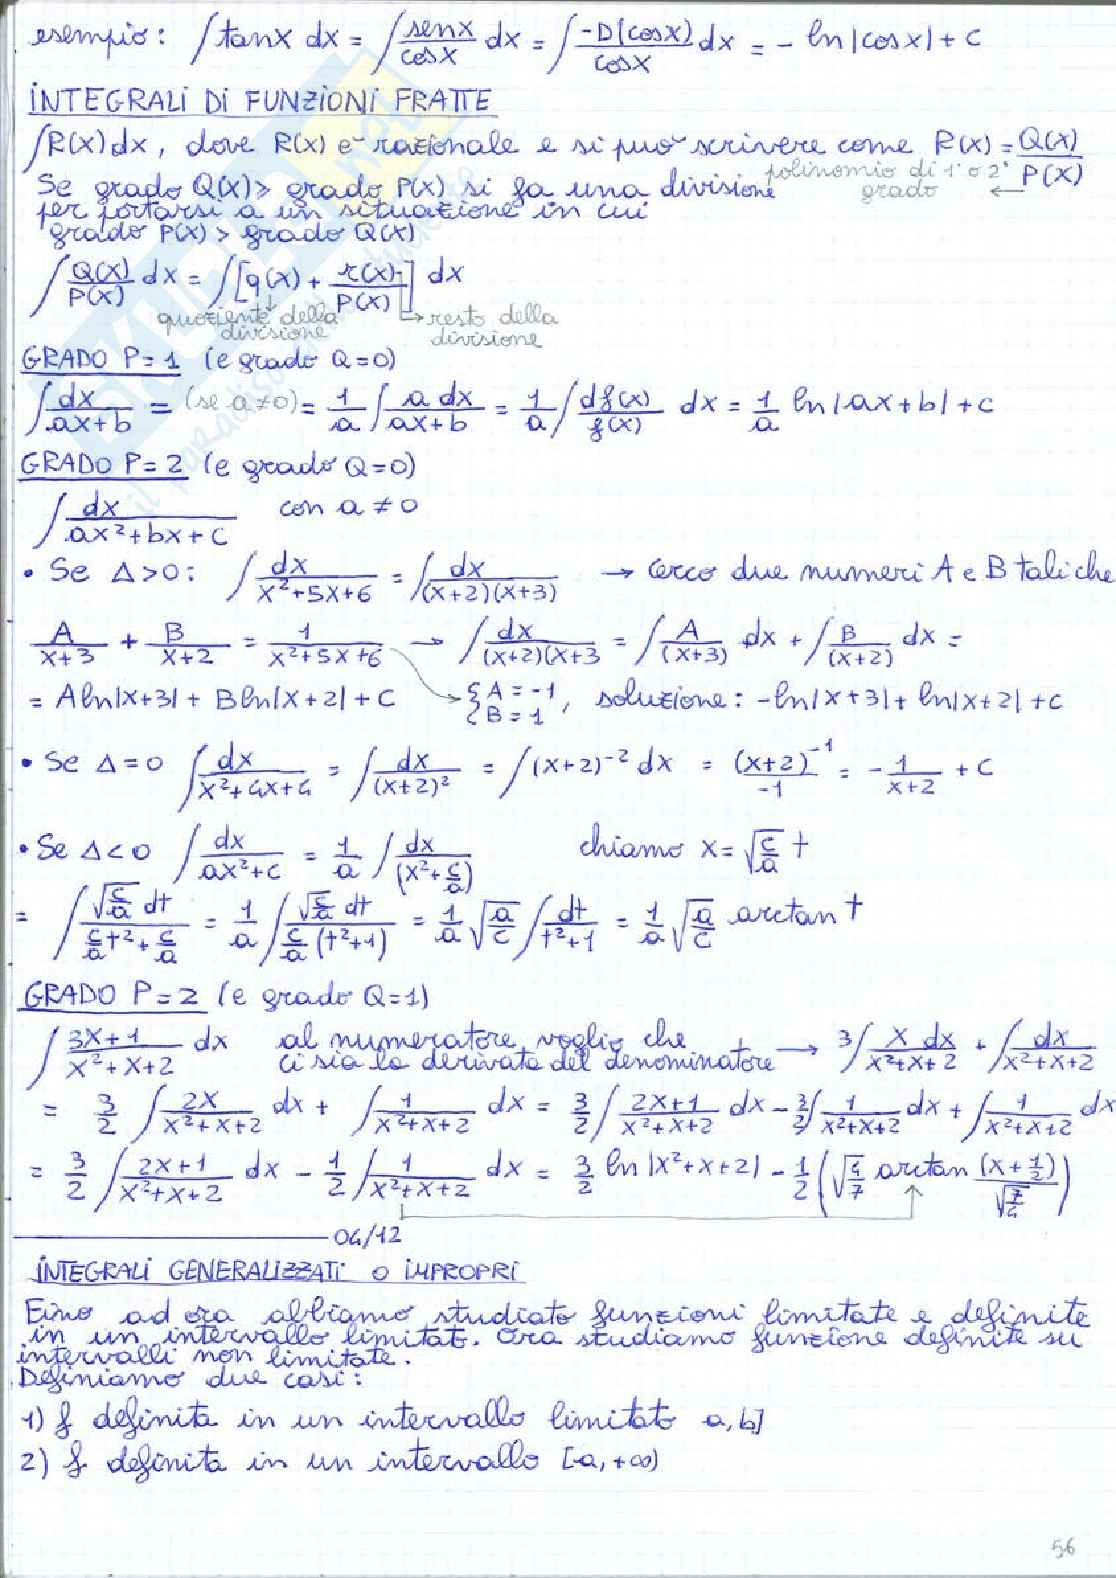 esempio: ∫tanx dx = ∫ senx/cosx dx = ∫ -D(cosx)/cosx dx = - ln|cosx| + c
INTEGRALI DI FUNZIONI FRATTE
∫R(x)dx, dove R(x) è razionale e si può scrivere come R(x) = Q(x)/P(x)
polinomio di 1° o 2° grado ←
Se grado Q(x) > grado P(x) si fa una divisione
per portarsi a un situazione in cui
grado P(x) > grado Q(x)
∫ Q(x)/P(x) dx = ∫[q(x) + r(x)/P(x)] dx
quoziente della divisione → resto della divisione
GRADO P=1 (e grado Q=0)
∫ dx/(ax+b) = (se a≠0) = 1/a ∫ a dx/(ax+b) = 1/a ∫ df(x)/f(x) dx = 1/a ln|ax+b| + c
GRADO P=2 (e grado Q=0)
∫ dx/(ax²+bx+c) con a≠0
• Se Δ>0: ∫ dx/(x²+5x+6) = ∫ dx/(x+2)(x+3) → cerco due numeri A e B tali che
A/(x+3) + B/(x+2) = 1/(x²+5x+6) → ∫ dx/(x+2)(x+3 = ∫ A/(x+3) dx + ∫ B/(x+2) dx =
= Aln|x+3| + Bln|x+2| + c → {A=-1 B=1, soluzione: -ln|x+3| + ln|x+2| + c
• Se Δ=0 ∫ dx/(x²+4x+4) = ∫ dx/(x+2)² = ∫(x+2)⁻² dx = (x+2)⁻¹/-1 = - 1/(x+2) + c
• Se Δ<0 ∫ dx/(ax²+c) = 1/a ∫ dx/(x²+c/a) chiamo x = √(c/a) t
= ∫ √(c/a) dt/(c/a t² + c/a) = 1/a ∫ √(c/a) dt/(c/a (t²+1)) = 1/a √(a/c) ∫ dt/(t²+1) = 1/a √(a/c) arctan t
GRADO P=2 (e grado Q=1)
∫ (3x+1)/(x²+x+2) dx al numeratore voglio che ci sia la derivata del denominatore → 3∫ x dx/(x²+x+2) + ∫ dx/(x²+x+2)
= 3/2 ∫ 2x/(x²+x+2) dx + ∫ 1/(x²+x+2) dx = 3/2 ∫ (2x+1)/(x²+x+2) dx - 3/2 ∫ 1/(x²+x+2) dx + ∫ 1/(x²+x+2) dx
= 3/2 ∫ (2x+1)/(x²+x+2) dx - 1/2 ∫ 1/(x²+x+2) dx = 3/2 ln|x²+x+2| - 1/2 (√(4/7) arctan (x+1/2)/√(7/4))
04/12
INTEGRALI GENERALIZZATI O IMPROPRI
Fino ad ora abbiamo studiato funzioni limitate e definite
in un intervallo limitato. Ora studiamo funzione definite su
intervalli non limitate.
Definiamo due casi:
1) f definita in un intervallo limitato a,b]
2) f definita in un intervallo [-a,+∞)
56